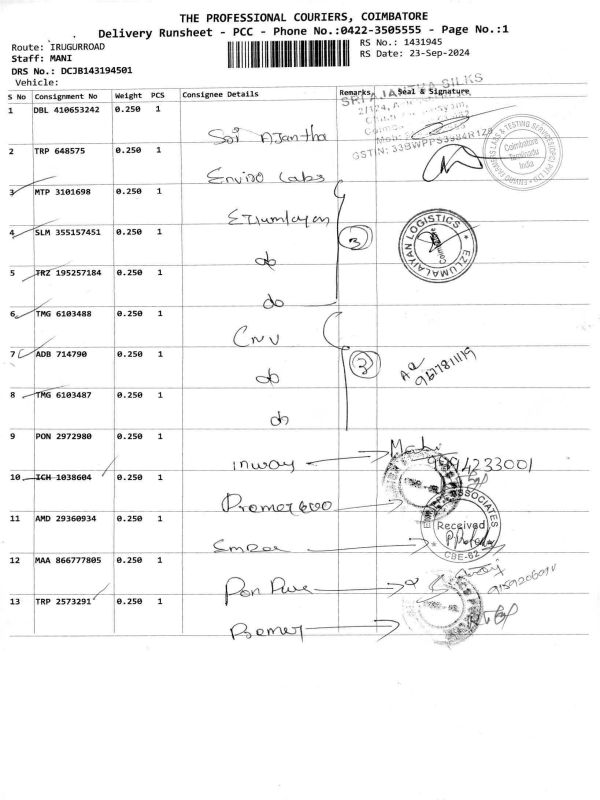 THE PROFESSIONAL COURIERS, COIMBATORE
Delivery Runsheet - PCC - Phone No.:0422-3505555 - Page No.:1
Route: IRUGURROAD
RS No.: 1431945
Staff: MANI
RS Date: 23-Sep-2024
DRS No.: DCJB143194501
Vehicle:
S No Consignment No Weight PCS Consignee Details Remarks Seal & Signature
1 DBL 410653242 0.250 1 Sri Ajantha
SRI AJANTHA SILKS
2 TRP 648575 0.250 1 Enviro Labs
Coimbatore
Tamilnadu
India
3 MTP 3101698 0.250 1 Ezlumlayan
4 SLM 355157451 0.250 1 do 3
EZLUMALAIYAN LOGISTICS
5 TRZ 195257184 0.250 1 do
6 TMG 6103488 0.250 1 Cnv
7 ADB 714790 0.250 1 do 3
8 TMG 6103487 0.250 1 do
9 PON 2972980 0.250 1 inway
9994233001
10 ICH 1038604 0.250 1
11 AMD 29360934 0.250 1
ASSOCIATES
Received
CBE-62
12 MAA 866777805 0.250 1 Pon Pure
13 TRP 2573291 0.250 1 Premer